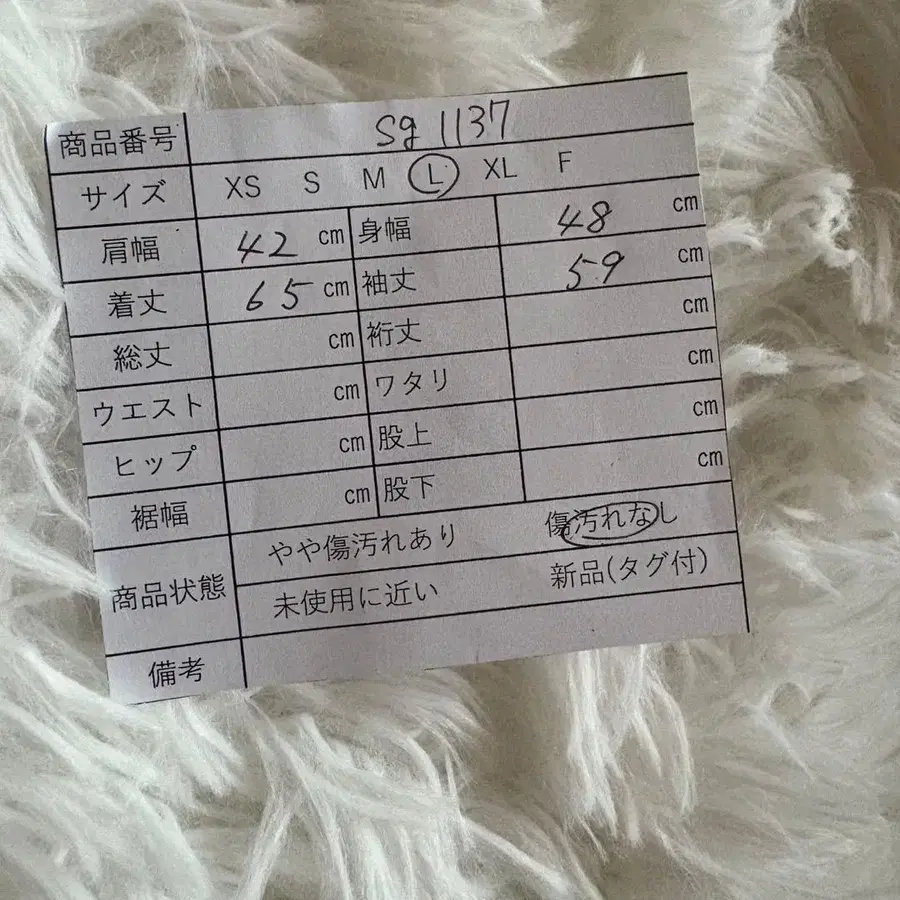 商品番号 sg 1137
サイズ XS S M L XL F
肩幅 42 cm 身幅 48 cm
着丈 65 cm 袖丈 59 cm
総丈 cm 裄丈 cm
ウエスト cm ワタリ cm
ヒップ cm 股上 cm
裾幅 cm 股下 cm
商品状態 やや傷汚れあり 傷汚れなし
未使用に近い 新品(タグ付)
備考